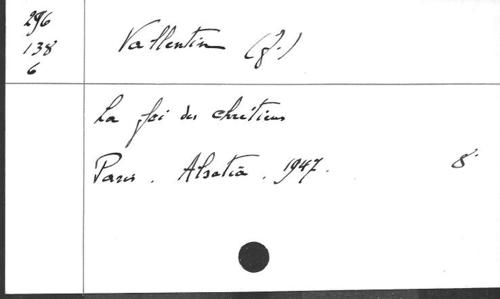 296
138
6
Vallentin (J.)
La foi des chrétiens
Paris. Alsatia. 1947. 8°